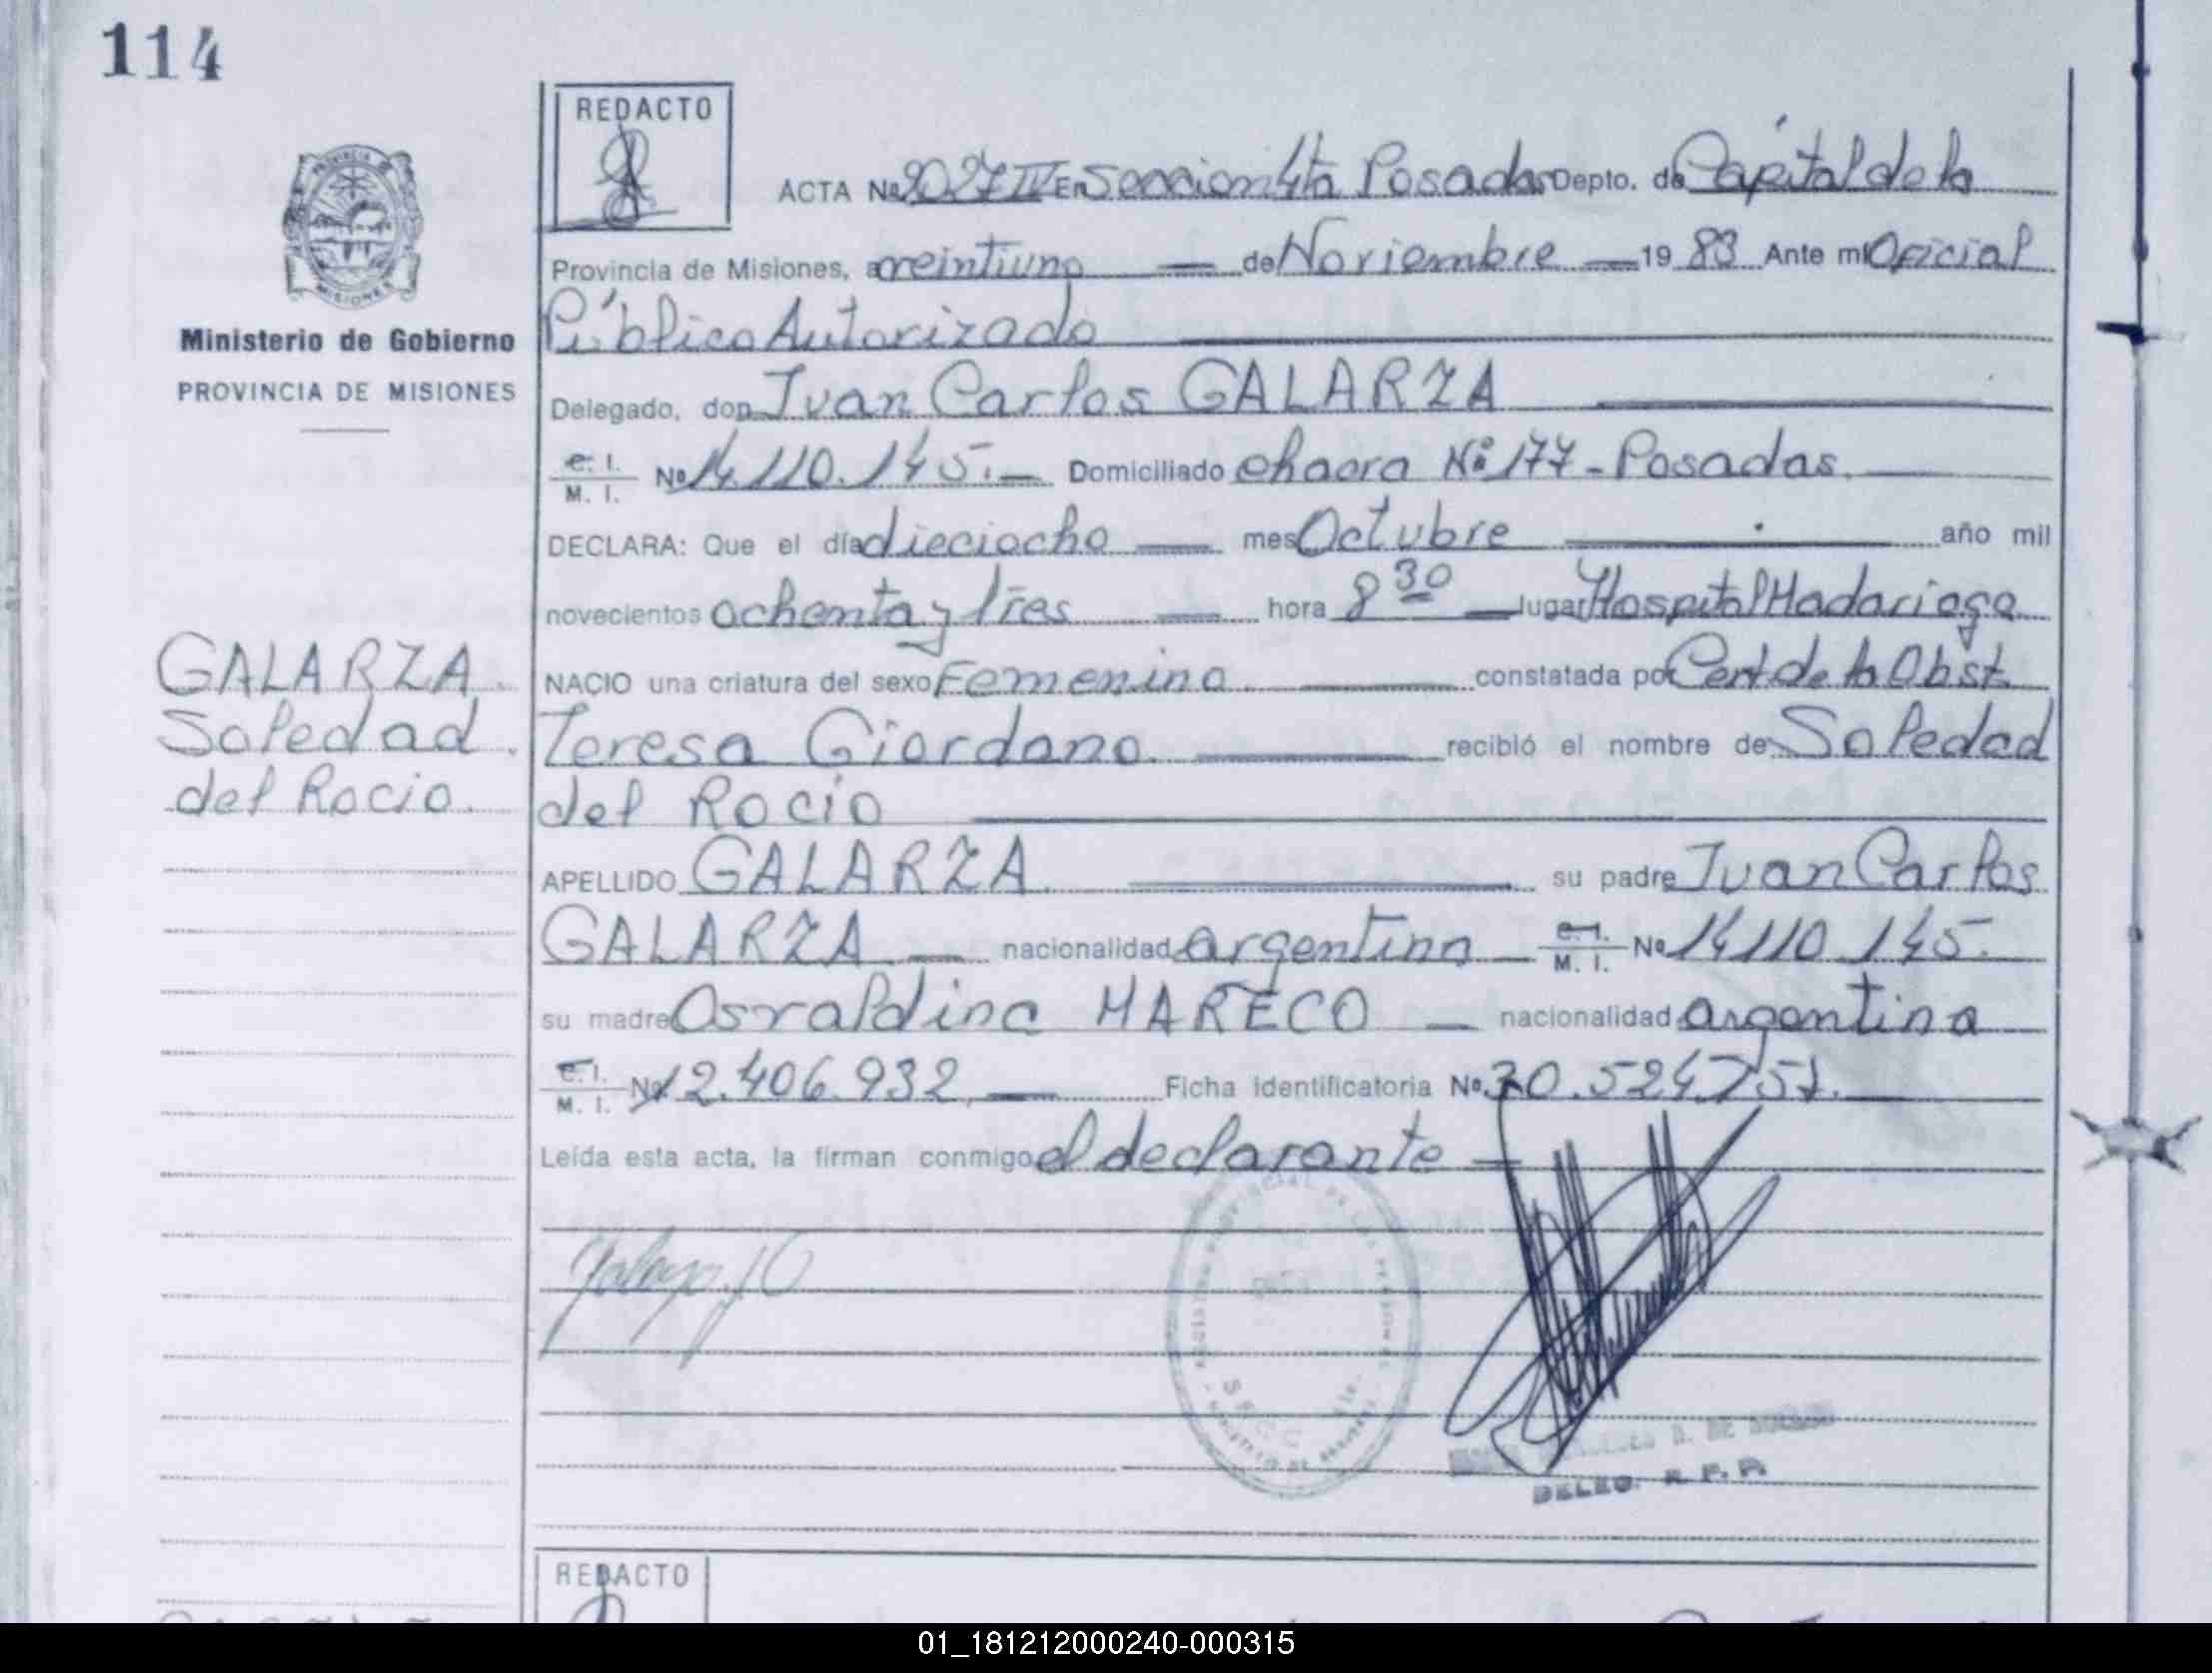 114
REDACTO
ACTA Nº 2027 IV En Seccion 4ta Posadas Depto. de Capital de la
Provincia de Misiones, a veintiuno — de Noviembre — 19 83 Ante mi Oficial
Ministerio de Gobierno
Público Autorizado
PROVINCIA DE MISIONES
Delegado, don Juan Carlos GALARZA
C. I.
M. I. Nº 14.110.145.— Domiciliado chacra Nº 177 - Posadas.
DECLARA: Que el día dieciocho — mes Octubre — año mil
novecientos ochenta y tres — hora 8 30 — lugar Hospital Madariaga
GALARZA.
NACIO una criatura del sexo Femenino. — constatada por Cert. de la Obst.
Soledad
Teresa Giordano. — recibió el nombre de Soledad
del Rocio.
del Rocio
APELLIDO GALARZA. — su padre Juan Carlos
GALARZA — nacionalidad argentina — C. I.
M. I. Nº 14.110.145.
su madre Osvaldina MARECO — nacionalidad argentina
C. I.
M. I. Nº 12.406.932. — Ficha identificatoria Nº 30.524.751.
Leída esta acta, la firman conmigo el declarante —
DELEG. R. P. P.
REDACTO
01_181212000240-000315